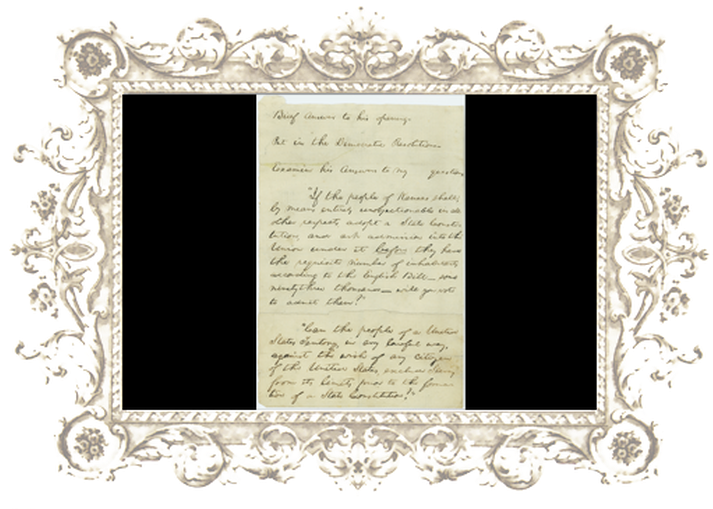 Brief answer to his opening.
Put in the Democratic Resolutions
Examine his answers to my questions
"If the people of Kansas shall,
by means entirely unobjectionable in all
other respects, adopt a State Consti-
tution, and ask admission into the
Union under it before they have
the requisite number of inhabitants
according to the English Bill— some
ninety three thousand— will you vote
to admit them?"
"Can the people of a United
States Territory, in any lawful way,
against the wish of any citizen
of the United States, exclude slavery
from its limits, prior to the forma-
tion of a State Constitution?"